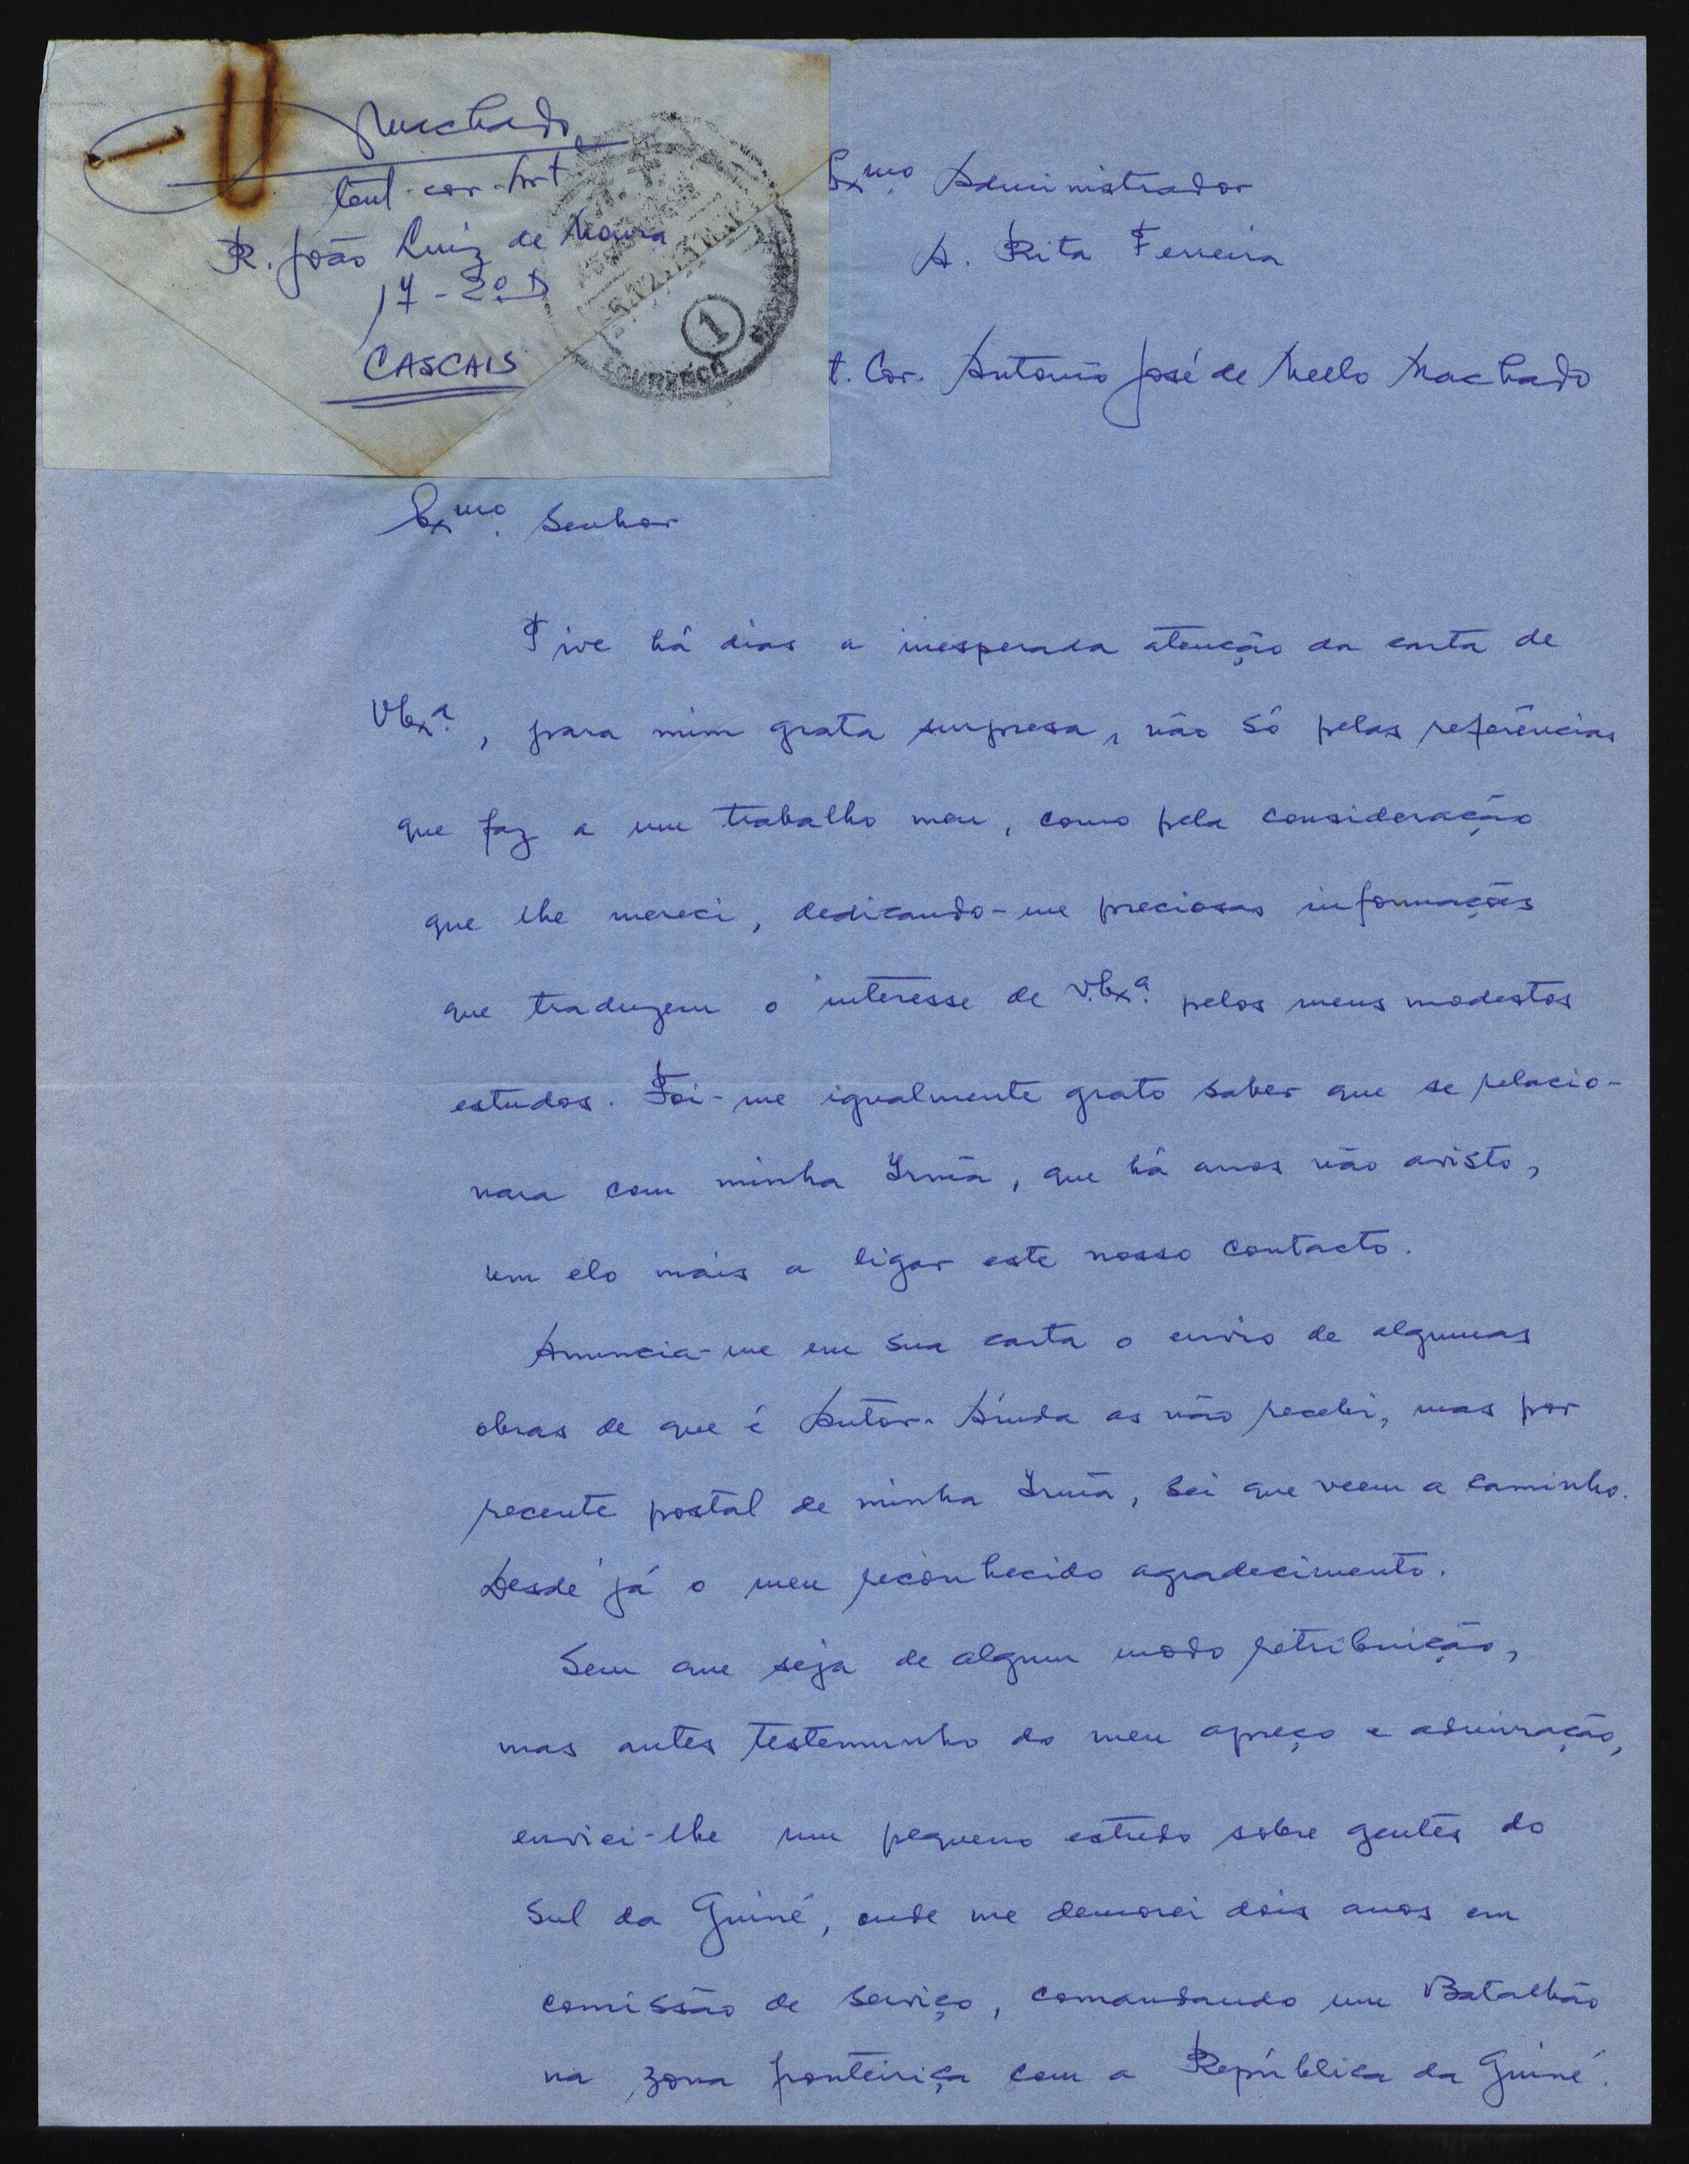 Machado
tent-cor-Artª
R. João Luiz de Moura
17-2º D
CASCAIS
LOURENÇO
1
Exmo. Administrador
A. Rita Ferreira
t. Cor. Antonio José de Mello Machado
Exmo. Senhor
Tive há dias a inesperada atenção da carta de
V.Exª., para mim grata surpresa, não só pelas referências
que faz a um trabalho meu, como pela consideração
que lhe mereci, dedicando-me preciosas informações
que traduzem o interesse de V.Exª. pelos meus modestos
estudos. Foi-me igualmente grato saber que se relacio-
nara com minha Irmã, que há anos não avisto,
um elo mais a ligar este nosso contacto.
Anuncia-me em sua carta o envio de algumas
obras de que é Autor. Ainda as não recebi, mas por
recente postal de minha Irmã, sei que veem a caminho.
Desde já o meu reconhecido agradecimento.
Sem que seja de algum modo retribuição,
mas antes testemunho do meu apreço e admiração,
enviei-lhe um pequeno estudo sobre gentes do
Sul da Guiné, onde me demorei dois anos em
comissão de serviço, comandando um Batalhão
na zona fronteiriça com a República da Guiné.